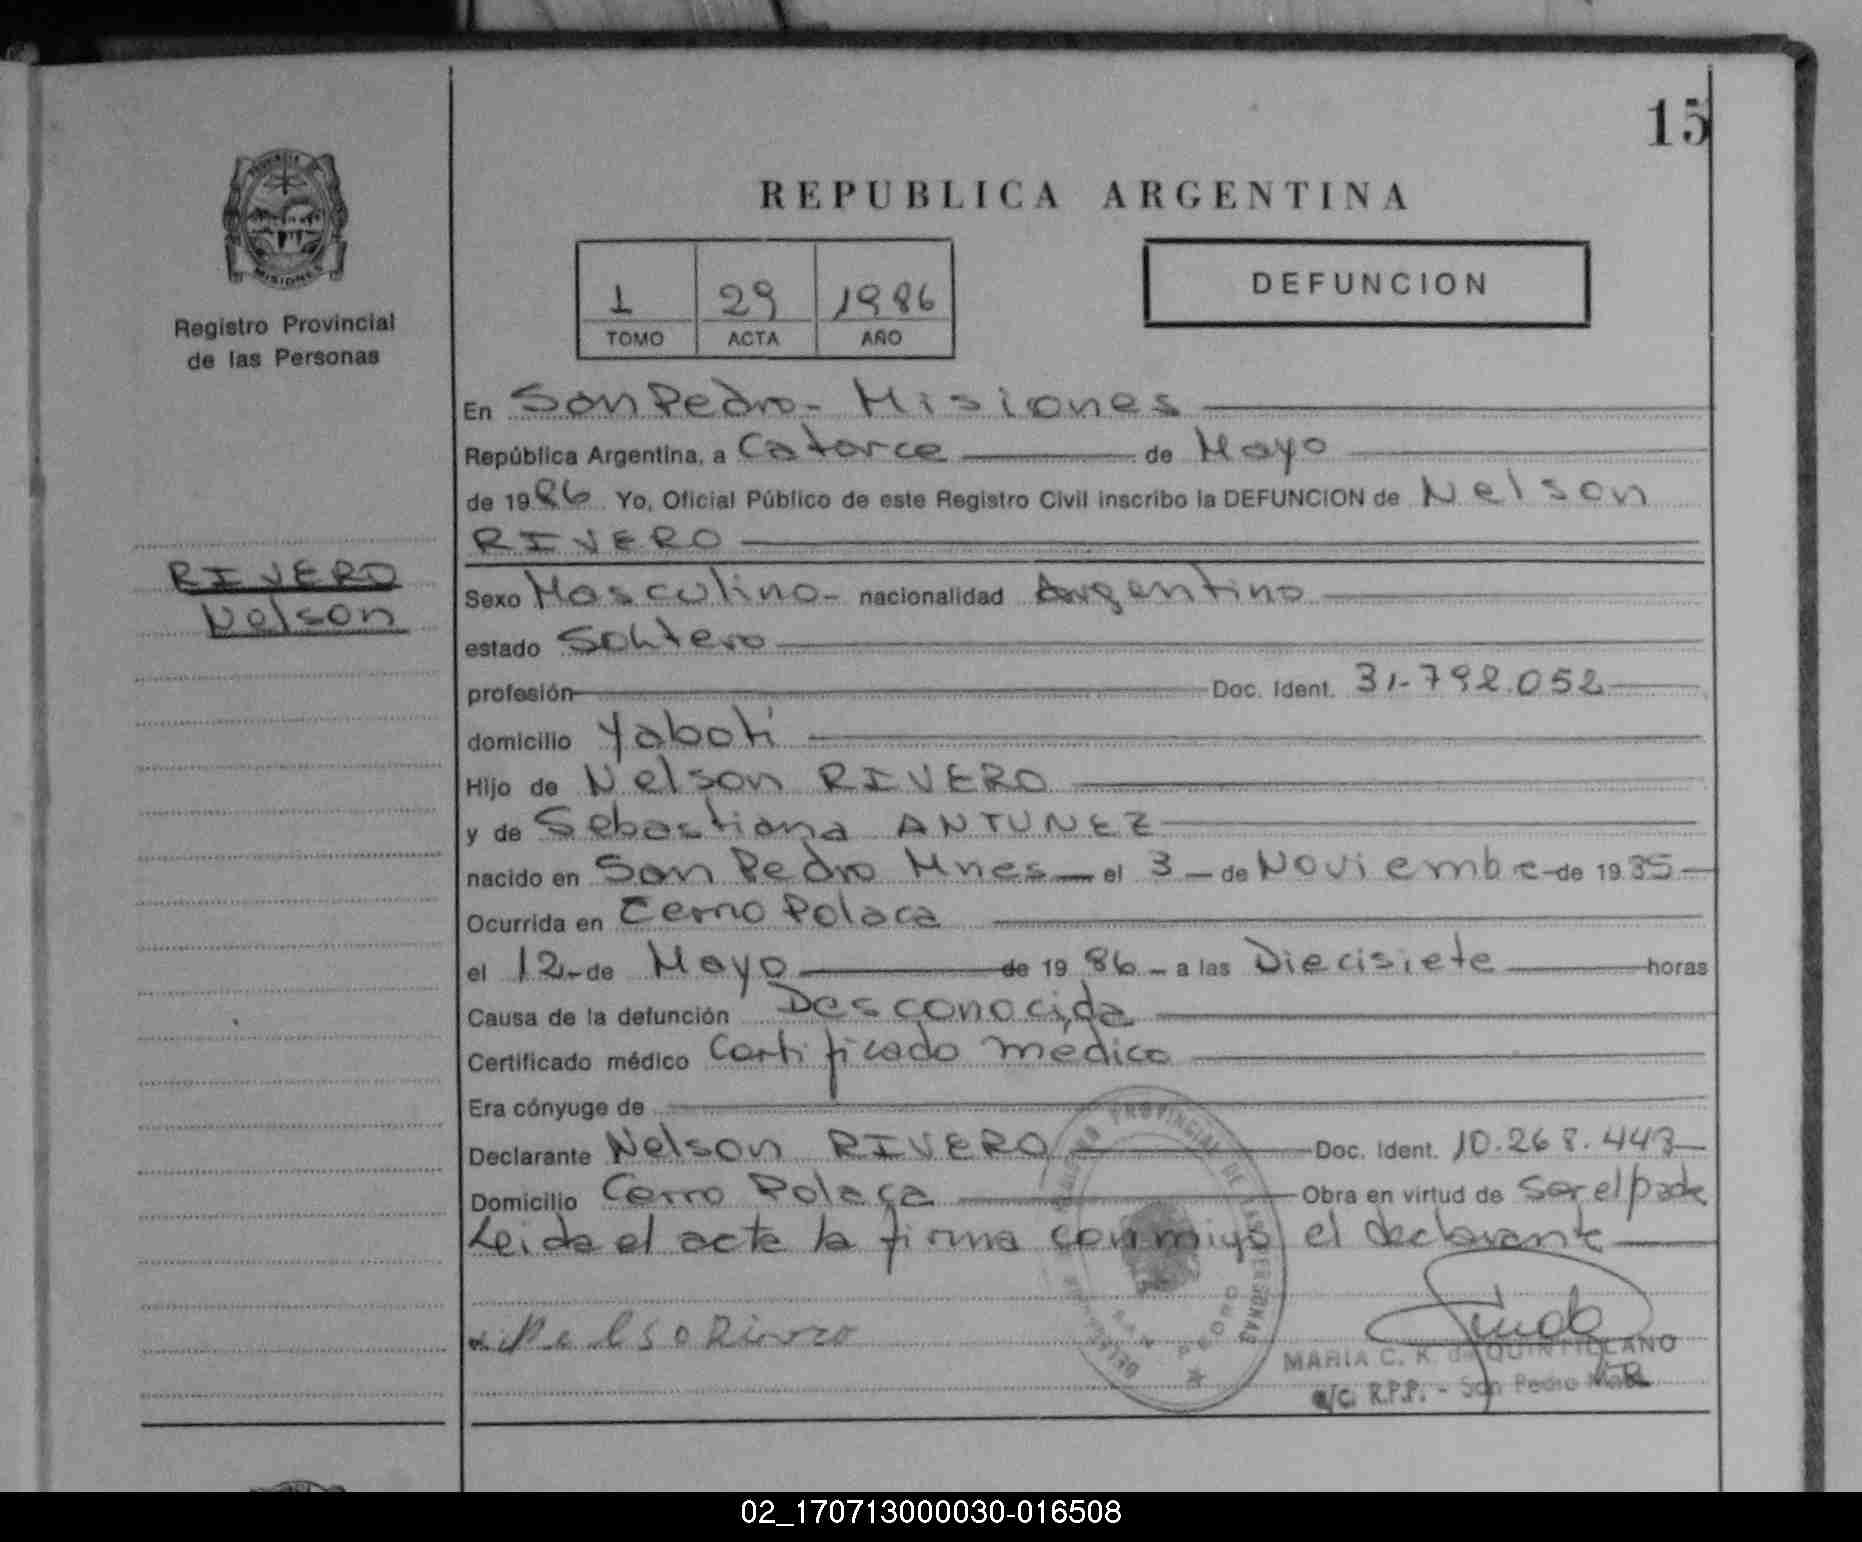 15
REPUBLICA ARGENTINA
MISIONES
Registro Provincial
de las Personas
1 29 1986
TOMO ACTA AÑO
DEFUNCION
En San Pedro - Misiones
República Argentina, a Catorce de Mayo
de 1986 Yo, Oficial Público de este Registro Civil inscribo la DEFUNCION de Nelson
RIVERO
RIVERO
Nelson
Sexo Masculino - nacionalidad Argentino
estado Soltero
profesión Doc. Ident. 31-792.052
domicilio Yaboti
Hijo de Nelson RIVERO
y de Sebastiana ANTUNEZ
nacido en San Pedro Mnes - el 3 - de Noviembre de 1985
Ocurrida en Cerro Polaca
el 12 - de Mayo de 1986 - a las Diecisiete horas
Causa de la defunción Desconocida
Certificado médico Certificado medico
Era cónyuge de
Declarante Nelson RIVERO Doc. Ident. 10.268.443
Domicilio Cerro Polaca Obra en virtud de ser el padre
Leida el acta la firma conmigo el declarante
PROVINCIAL DE LAS PERSONAS
MARIA C. K. de QUINTILLANO
a/c. R.P.P. - San Pedro Mnes
02_170713000030-016508